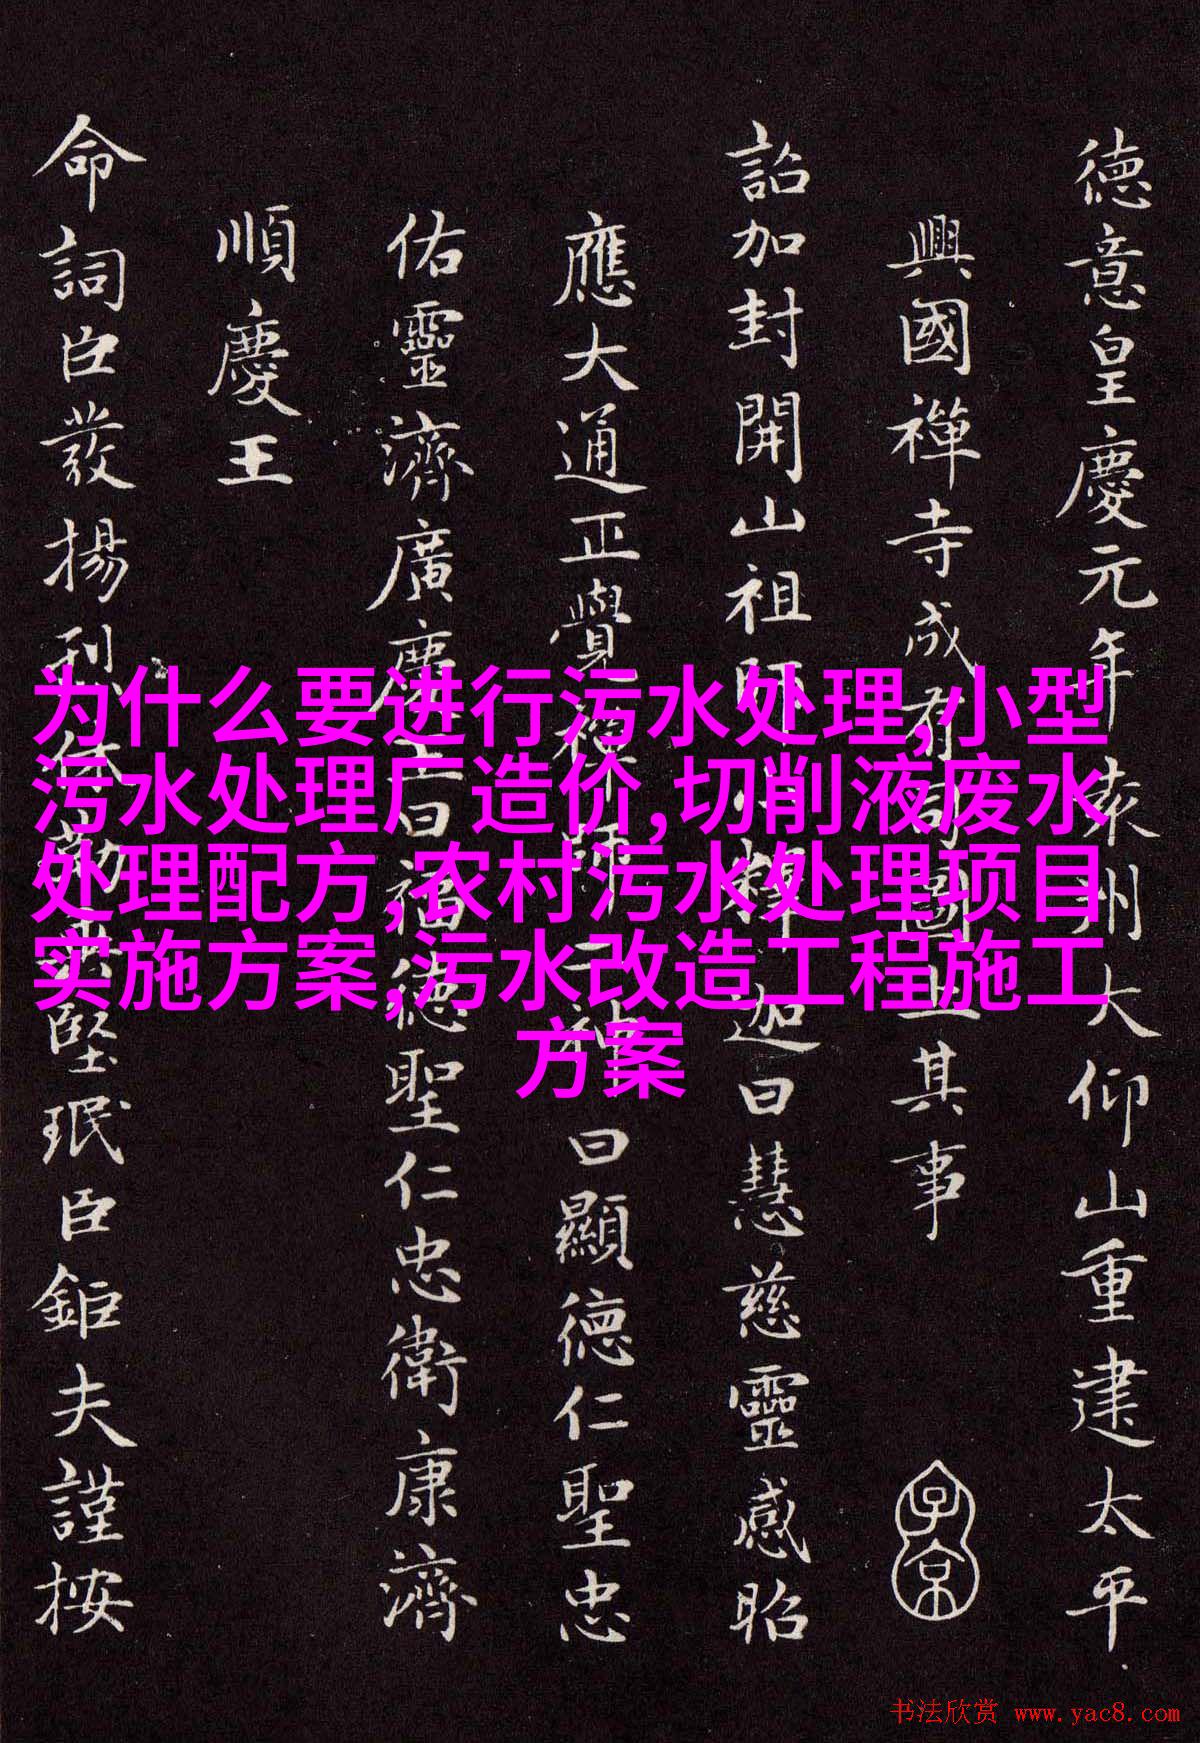 德意皇慶元年袁州大仰山重建太平
興國禪寺成有司圖上其事
子京
詔加封開山祖師小釋迦曰慧慈靈感昭
應大通正覺禪師二神曰顯德仁聖忠
佑靈濟廣慶王曰福德聖仁忠衛康濟
順慶王
命詞臣發揚休堅珉臣鉅夫謹按
为什么要进行污水处理,小型
污水处理厂造价,切削液废水
处理配方,农村污水处理项目
实施方案,污水改造工程施工
方案
书法欣赏 www.yac8.com